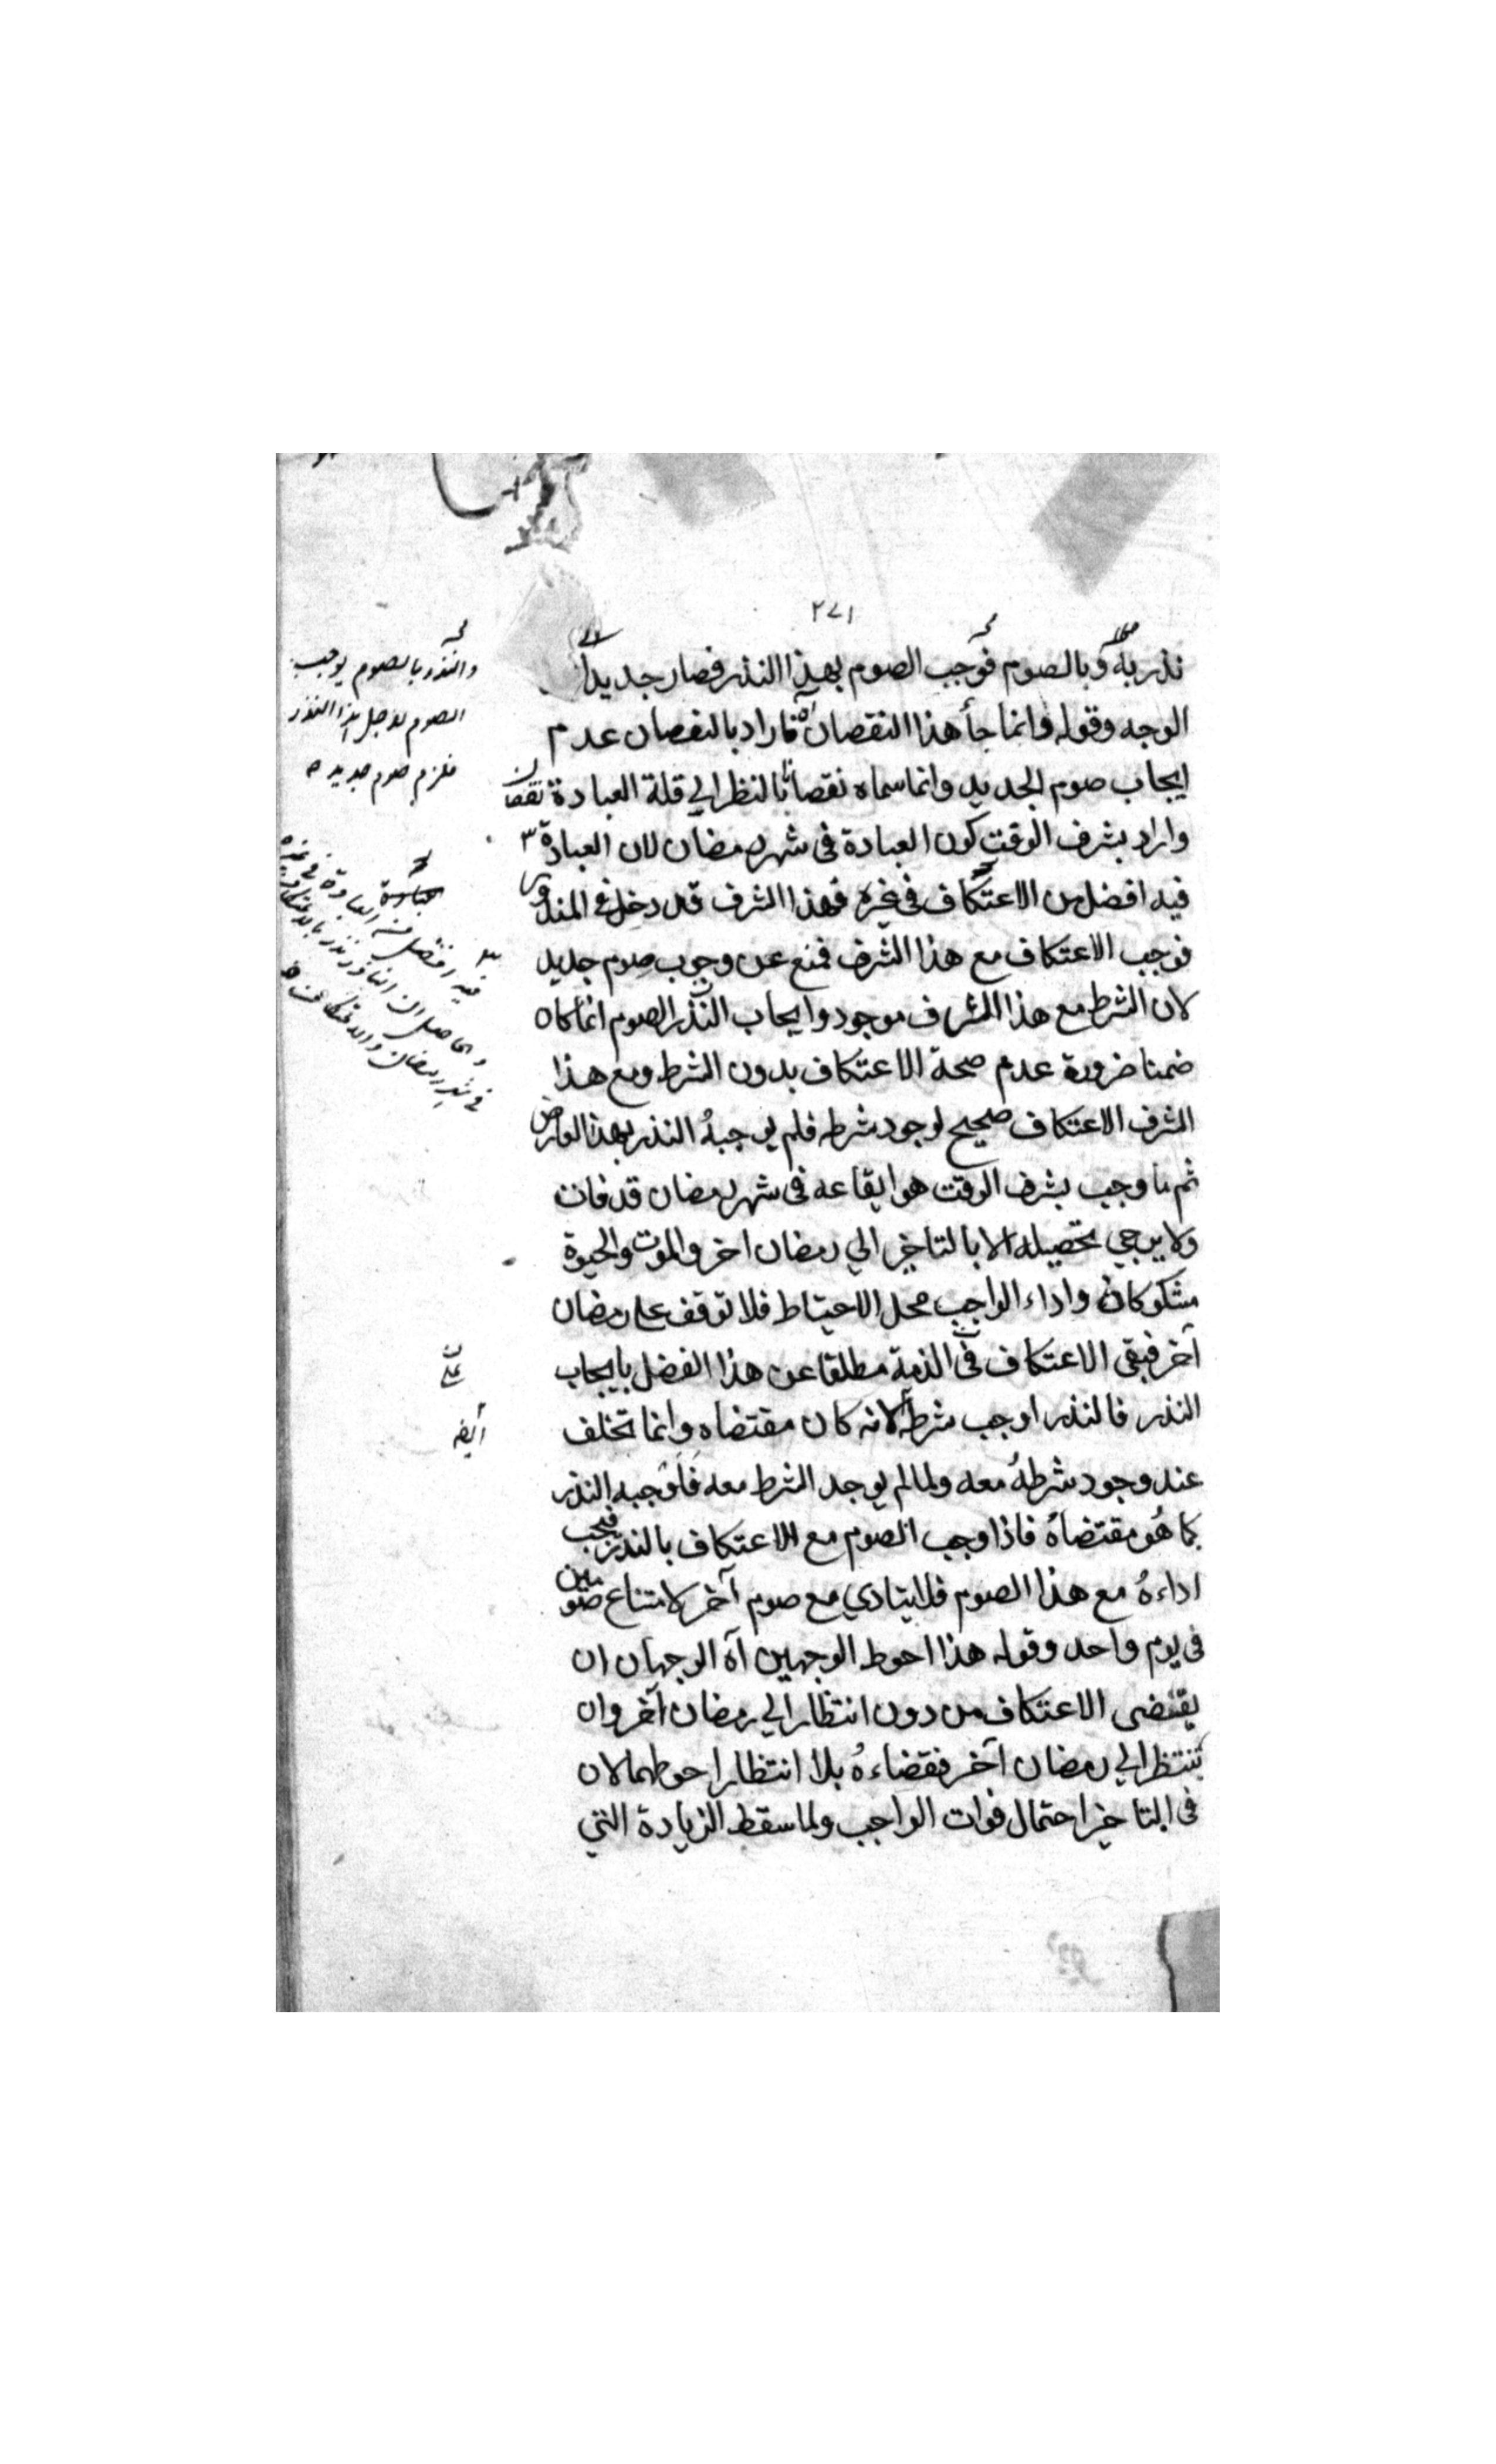 ٢٧١
نذر به وبالصوم فوجب الصوم بهذا النذر فصار جديدا
الوجه وقوله وانما جأ هذا النقصان آه فاراد بالنقصان عدم
ايجاب صوم الجديد وانما سماه نقصانا بالنظر الي قلة العبادة نقصان
واراد بشرف الوقت كون العبادة فى شهر رمضان لان العبادة ٣
فيه افضل من الاعتكاف فى غيره فهذا الشرف قد دخل فى المنذور
فوجب الاعتكاف مع هذا الشرف فمنع عن وجوب صوم جديد
لان الشرط مع هذا الشرف موجود وايجاب النذر الصوم انما كان
ضمنا ضرورة عدم صحة الاعتكاف بدون الشرط ومع هذا
الشرف الاعتكاف صحيح لوجود شرطه فلم يوجبهُ النذر بهذا العارض
ثم ما وجب بشرف الوقت هو ايقاعه فى شهر رمضان قد فات
ولا يرجي تحصيله الا بالتاخير الي رمضان اخر والموت والحيوة
مشكوكان واداء الواجب محل الاحتياط فلا توقف على رمضان
آخر فبقى الاعتكاف فى الذمة مطلقا عن هذا الفضل بايجاب
النذر فالنذر اوجب شرطه لانه كان مقتضاه وانما تخلف
عند وجود شرطهُ معه ولما لم يوجد الشرط معه فاوجبه النذر
كما هُو مقتضاهُ فاذا وجب الصوم مع الاعتكاف بالنذر فيجب
اداءهُ مع هذا الصوم فلا يتادي مع صوم آخر لامتناع صومين
فى يوم واحد وقوله هذا احوط الوجهين آه الوجهان ان
يقتضى الاعتكاف من دون انتظار الي رمضان آخر وان
ينتظر الي رمضان آخر فقضاءهُ بلا انتظار احوطهما لان
فى التاخير احتمال فوات الواجب ولما سقط الزيادة التي
والنذر بالصوم يوجب
الصوم لاجل هذا النذر
فلزم صوم جديد
فيه افضل من العبادة فى غيره
والحاصل ان
فى شهر رمضان والاعتكاف